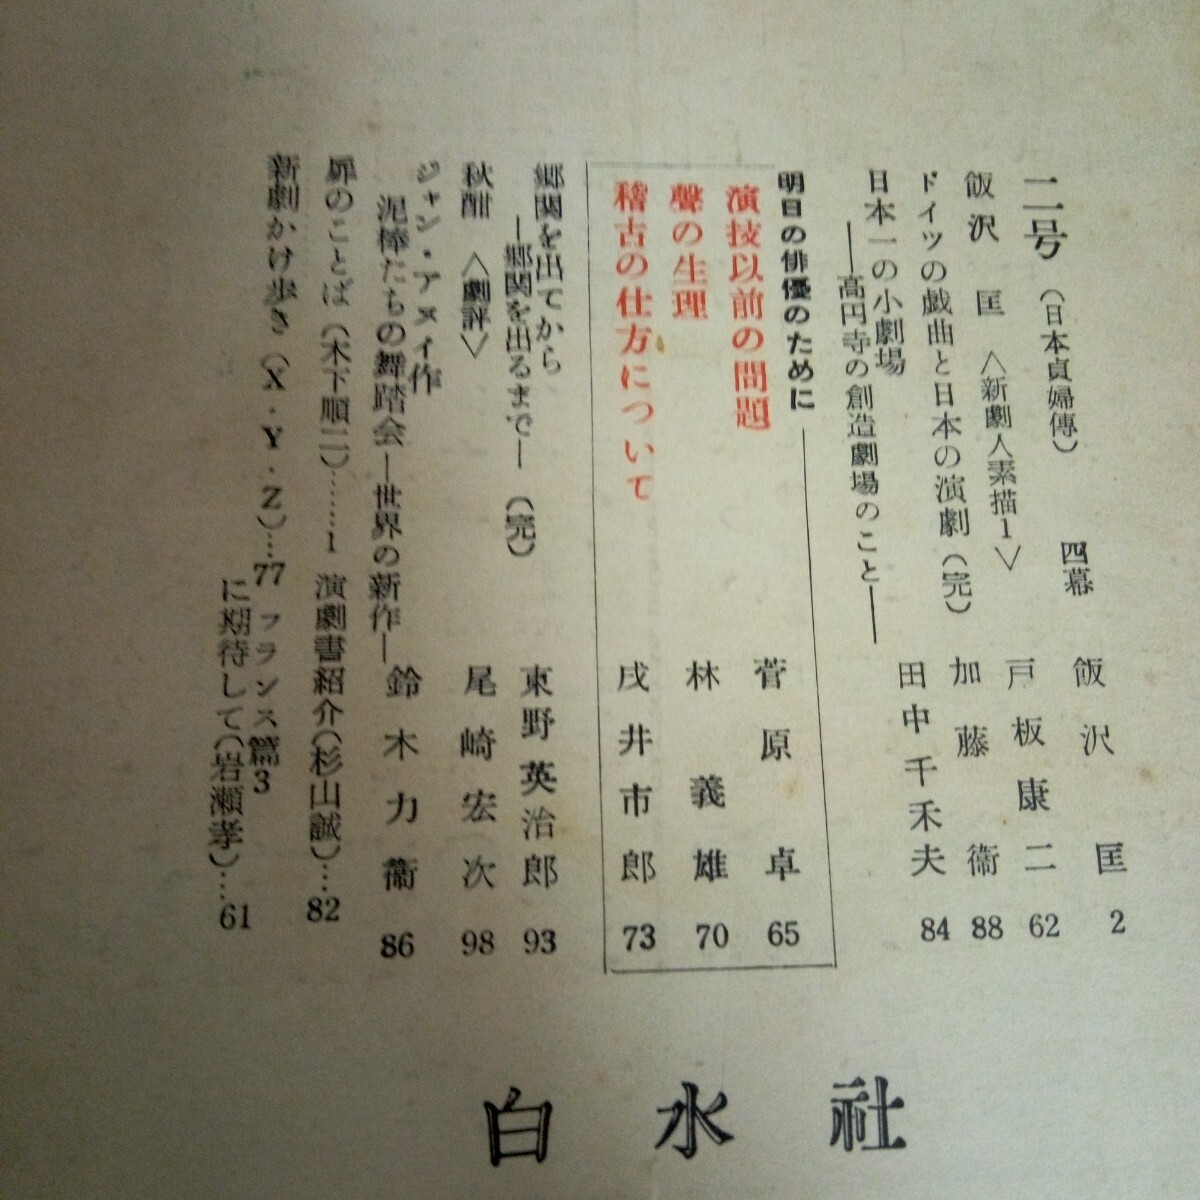 二号（日本貞婦傳）　四幕　飯沢匡　2
飯沢匡〈新劇人素描1〉　戸板康二　62
ドイツの戯曲と日本の演劇（完）　加藤衞　88
日本一の小劇場
―高円寺の創造劇場のこと―　田中千禾夫　84
明日の俳優のために
演技以前の問題　菅原卓　65
聲の生理　林義雄　70
稽古の仕方について　戌井市郎　73
郷関を出てから
―郷関を出るまで―（完）　東野英治郎　93
秋酣〈劇評〉　尾崎宏次　98
ジャン・アヌイ作
泥棒たちの舞踏会―世界の新作―　鈴木力衞　86
扉のことば（木下順二）……1　演劇書紹介（杉山誠）…82
新劇かけ歩き（X・Y・Z）…77　フランス篇3
に期待して（岩瀬孝）…61
白水社